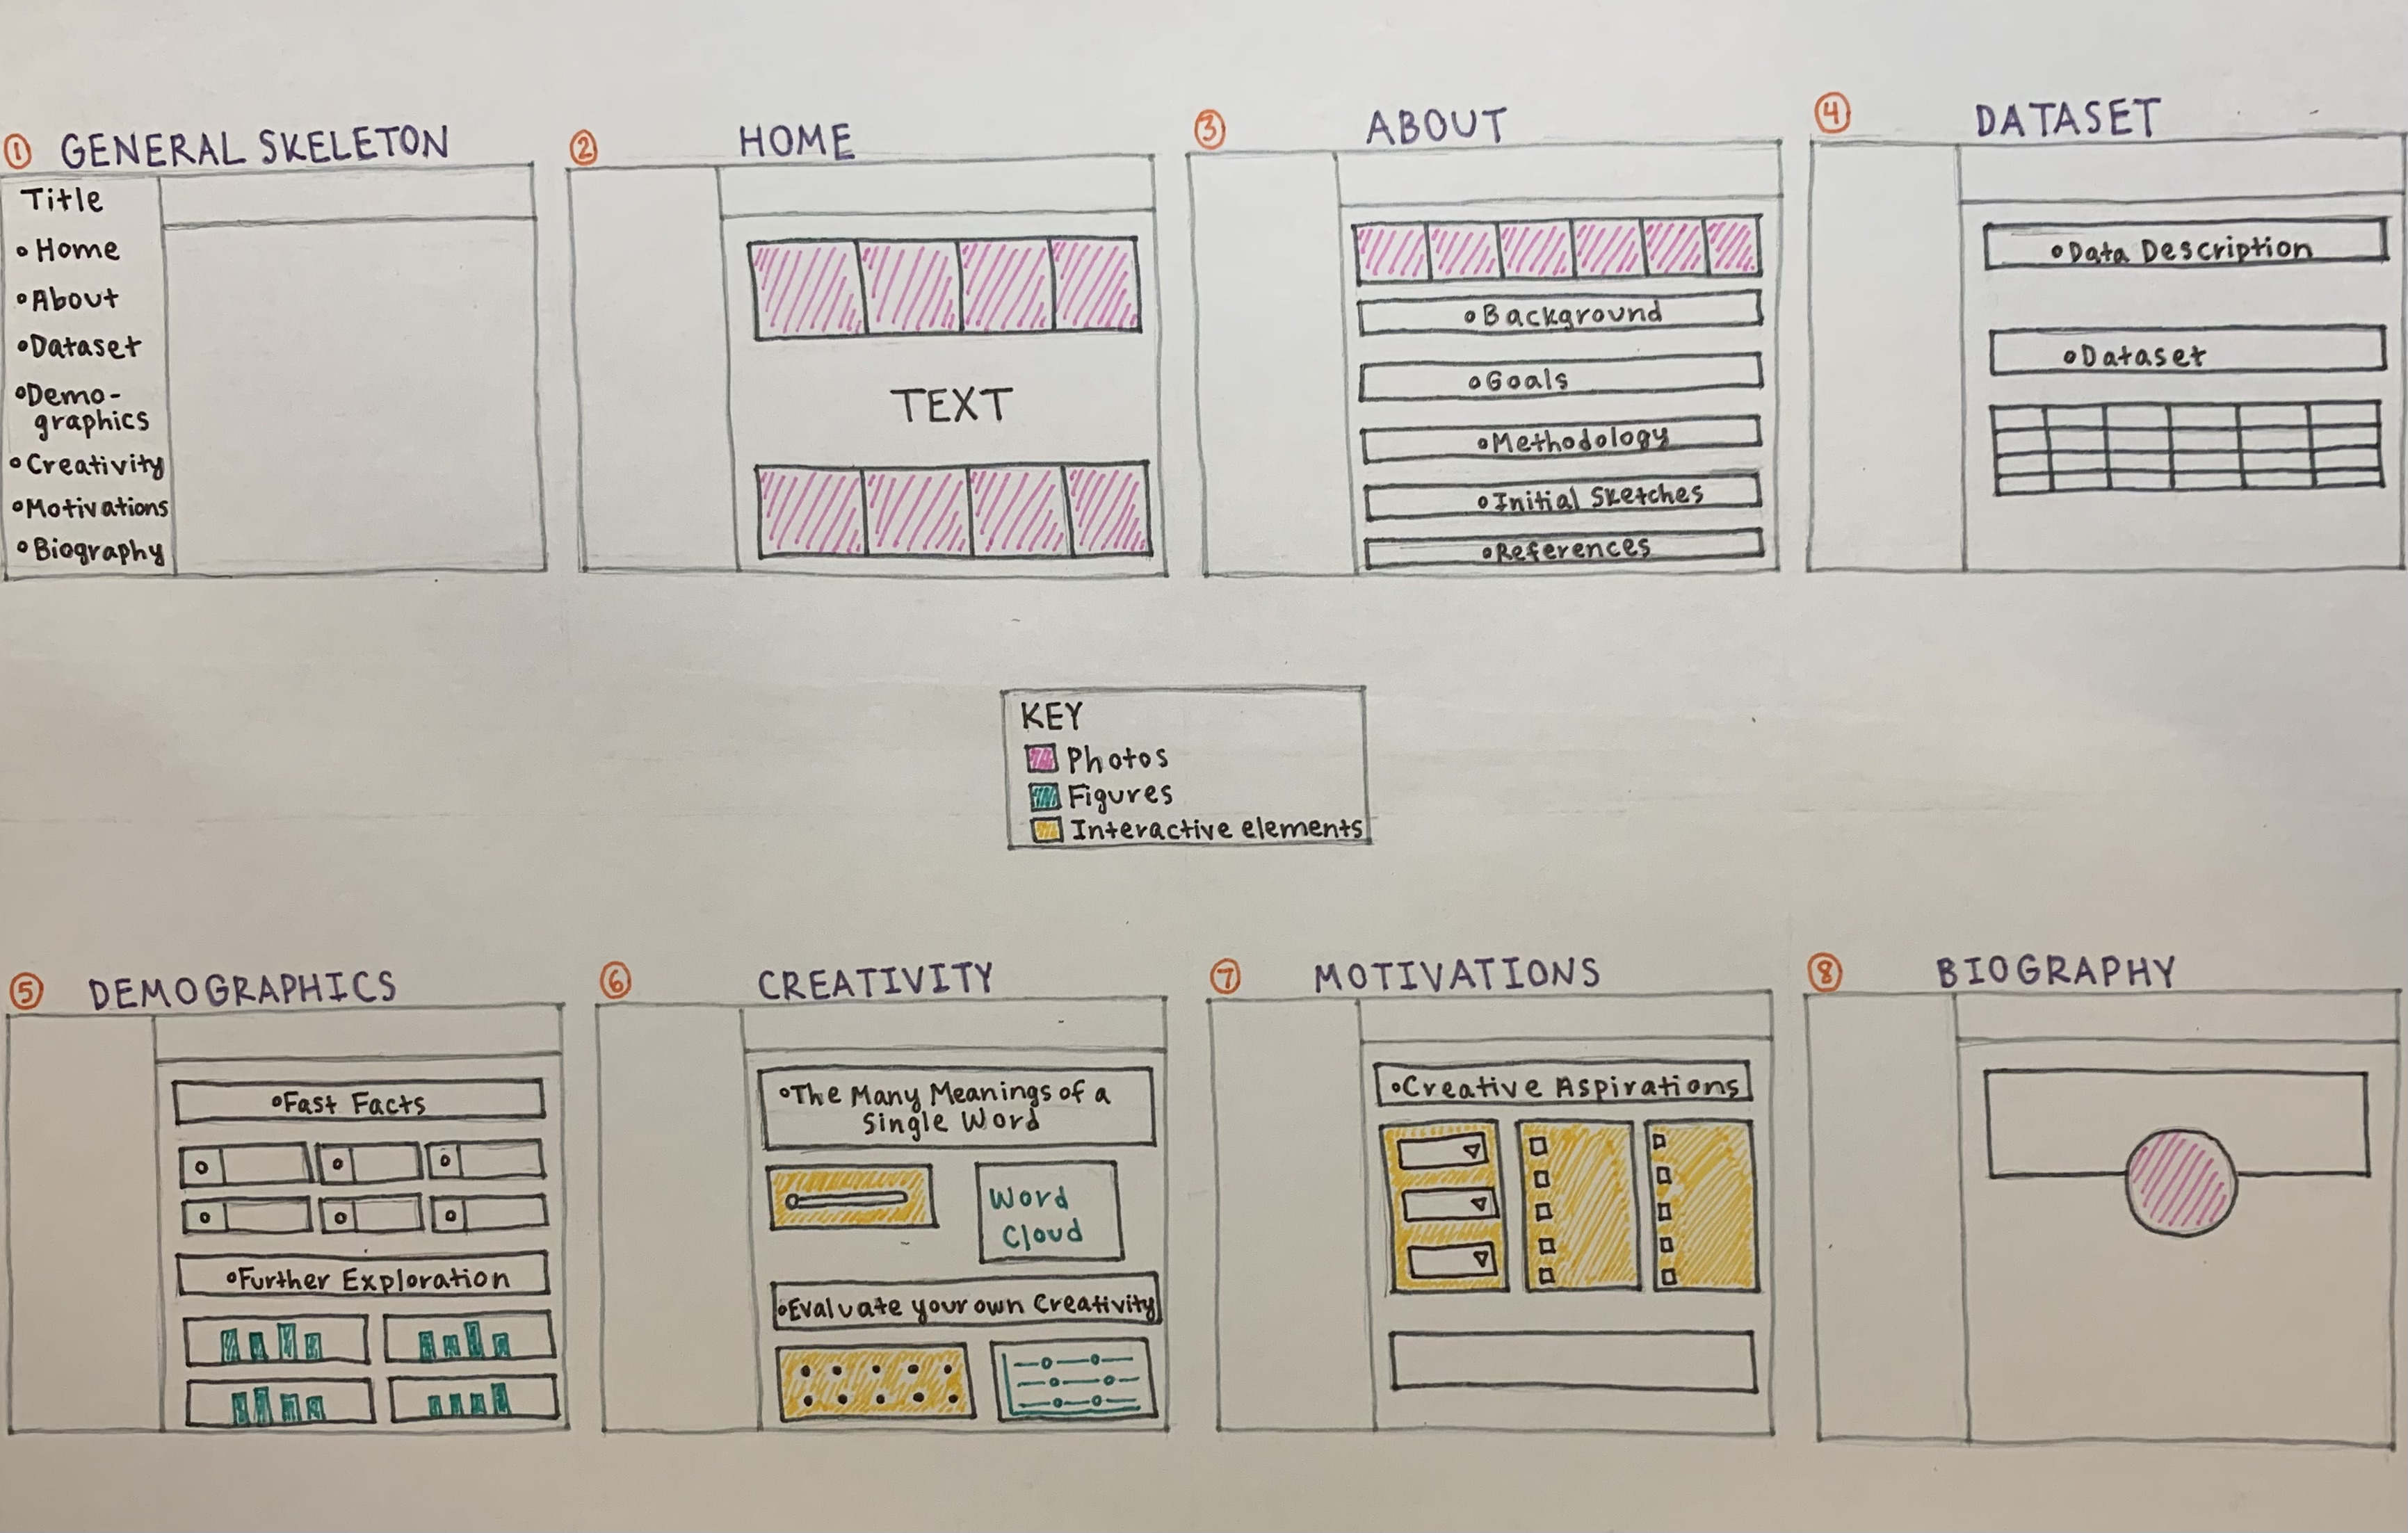 ① GENERAL SKELETON
Title
Home
About
Dataset
Demo-
graphics
Creativity
Motivations
Biography
② HOME
TEXT
③ ABOUT
Background
Goals
Methodology
Initial Sketches
References
④ DATASET
Data Description
Dataset
KEY
Photos
Figures
Interactive elements
⑤ DEMOGRAPHICS
Fast Facts
Further Exploration
⑥ CREATIVITY
The Many Meanings of a
Single Word
Word
Cloud
Evaluate your own Creativity
⑦ MOTIVATIONS
Creative Aspirations
⑧ BIOGRAPHY